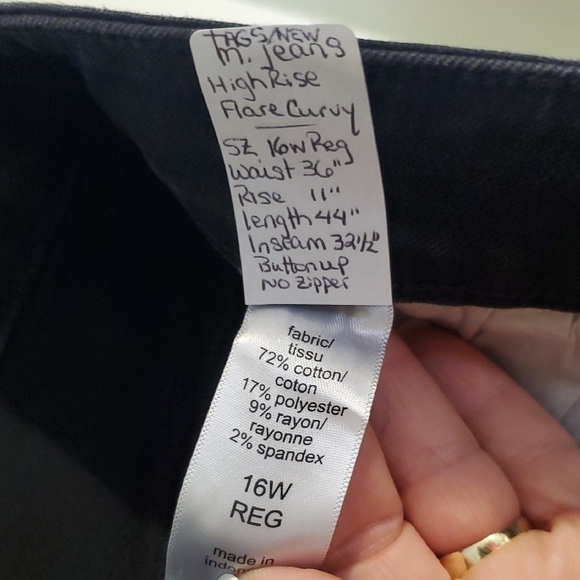 TAGS/NEW
m. jeans
High Rise
Flare Curvy
SZ 16W Reg
Waist 36"
Rise 11"
length 44"
Inseam 32½"
Button up
NO Zipper
fabric/
tissu
72% cotton/
coton
17% polyester
9% rayon/
rayonne
2% spandex
16W
REG
made in